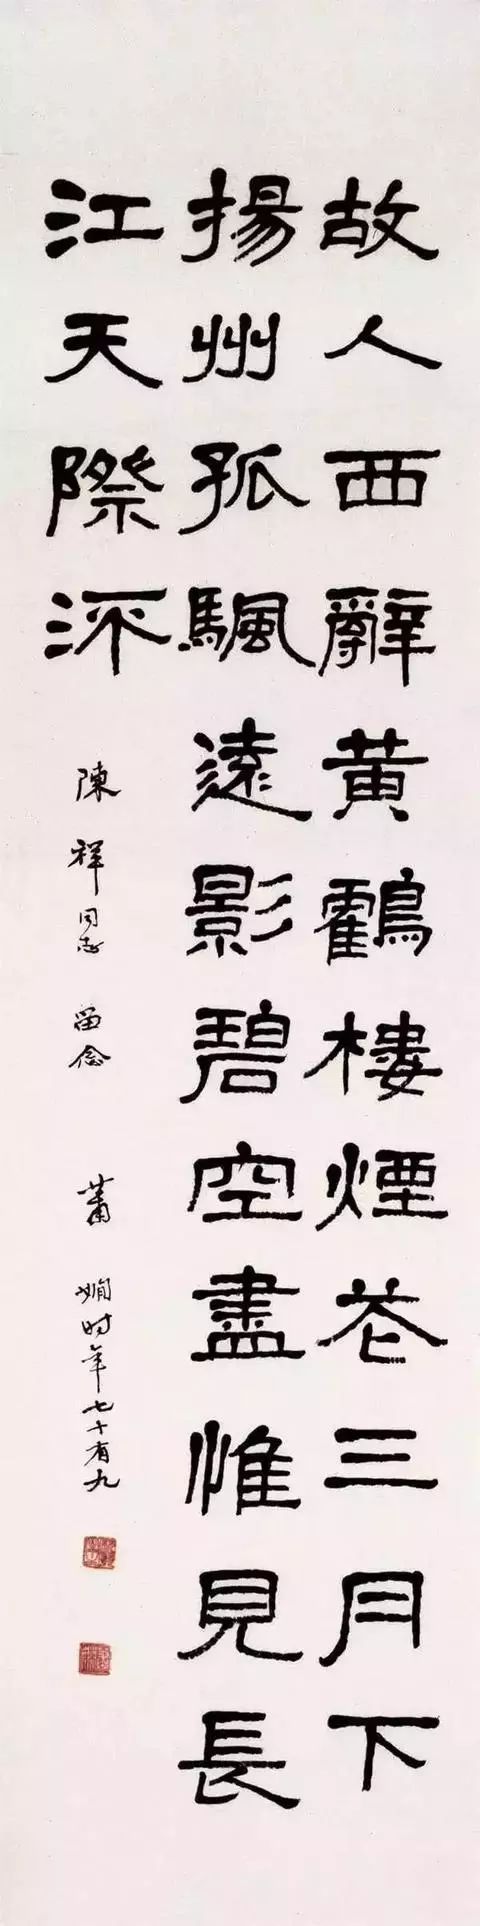 故人西辭黄鸖樓煙花三月下
揚州孤颿遠影碧空盡惟見長
江天際㳅
陳祥同志 留念 蕭嫻时年七十有九